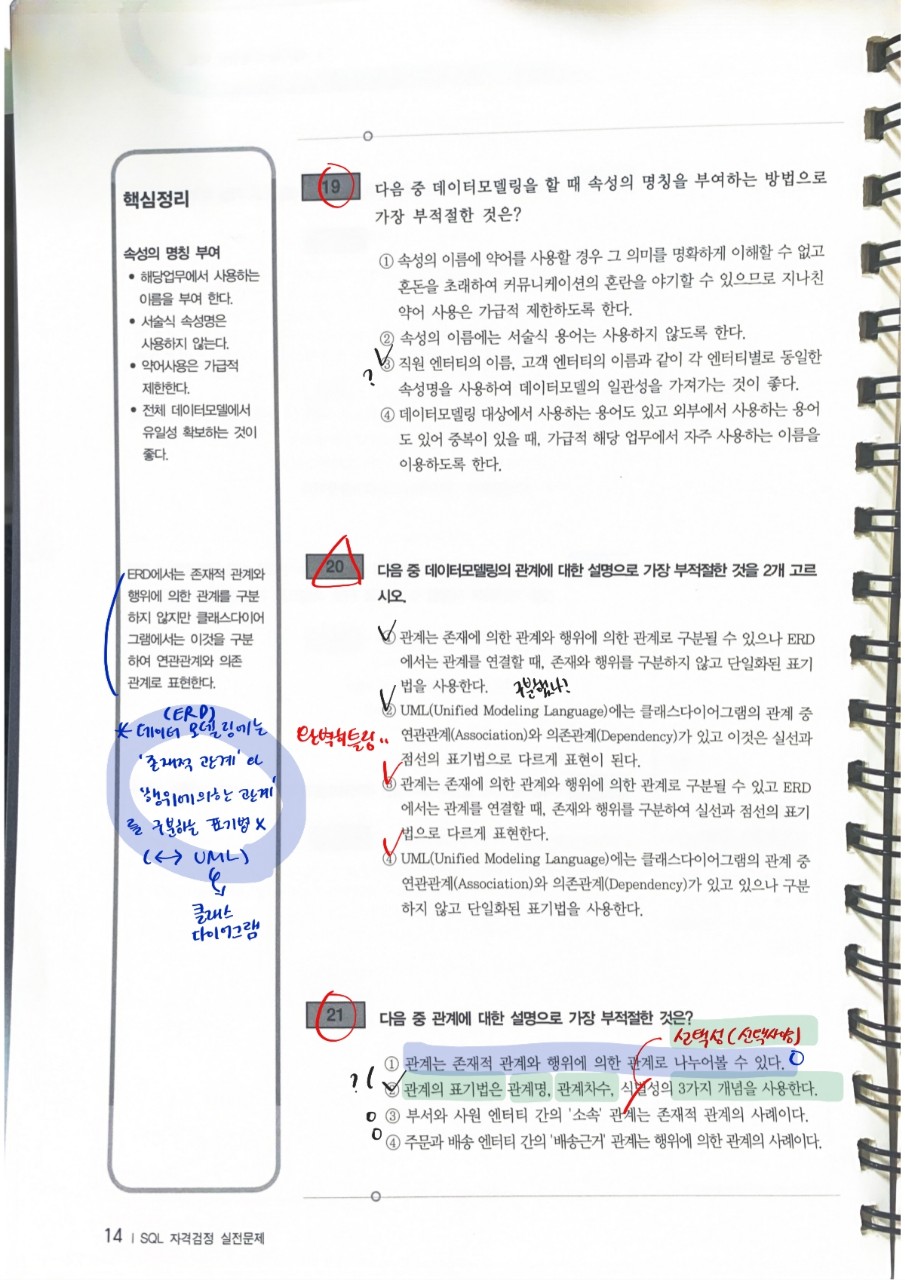 핵심정리
속성의 명칭 부여
• 해당업무에서 사용하는
이름을 부여 한다.
• 서술식 속성명은
사용하지 않는다.
• 약어사용은 가급적
제한한다.
• 전체 데이터모델에서
유일성 확보하는 것이
좋다.
19
다음 중 데이터모델링을 할 때 속성의 명칭을 부여하는 방법으로
가장 부적절한 것은?
① 속성의 이름에 약어를 사용할 경우 그 의미를 명확하게 이해할 수 없고
혼돈을 초래하여 커뮤니케이션의 혼란을 야기할 수 있으므로 지나친
약어 사용은 가급적 제한하도록 한다.
② 속성의 이름에는 서술식 용어는 사용하지 않도록 한다.
③ 직원 엔터티의 이름, 고객 엔터티의 이름과 같이 각 엔터티별로 동일한
?
속성명을 사용하여 데이터모델의 일관성을 가져가는 것이 좋다.
④ 데이터모델링 대상에서 사용하는 용어도 있고 외부에서 사용하는 용어
도 있어 중복이 있을 때, 가급적 해당 업무에서 자주 사용하는 이름을
이용하도록 한다.
ERD에서는 존재적 관계와
행위에 의한 관계를 구분
하지 않지만 클래스다이어
그램에서는 이것을 구분
하여 연관관계와 의존
관계로 표현한다.
(ERD)
* 데이터 모델링에는
'존재적 관계' 와
'행위에 의한 관계'
를 구분하는 표기법 X
(↔ UML)
클래스
다이어그램
20
다음 중 데이터모델링의 관계에 대한 설명으로 가장 부적절한 것을 2개 고르
시오.
① 관계는 존재에 의한 관계와 행위에 의한 관계로 구분될 수 있으나 ERD
에서는 관계를 연결할 때, 존재와 행위를 구분하지 않고 단일화된 표기
법을 사용한다.
구분했나?
② UML(Unified Modeling Language)에는 클래스다이어그램의 관계 중
연관관계(Association)와 의존관계(Dependency)가 있고 이것은 실선과
완벽히틀림..
점선의 표기법으로 다르게 표현이 된다.
③ 관계는 존재에 의한 관계와 행위에 의한 관계로 구분될 수 있고 ERD
에서는 관계를 연결할 때, 존재와 행위를 구분하여 실선과 점선의 표기
법으로 다르게 표현한다.
④ UML(Unified Modeling Language)에는 클래스다이어그램의 관계 중
연관관계(Association)와 의존관계(Dependency)가 있고 있으나 구분
하지 않고 단일화된 표기법을 사용한다.
21
다음 중 관계에 대한 설명으로 가장 부적절한 것은?
선택성(선택사양)
① 관계는 존재적 관계와 행위에 의한 관계로 나누어볼 수 있다. O
?( ② 관계의 표기법은 관계명, 관계차수, 식별성의 3가지 개념을 사용한다.
O ③ 부서와 사원 엔터티 간의 '소속' 관계는 존재적 관계의 사례이다.
O ④ 주문과 배송 엔터티 간의 '배송근거' 관계는 행위에 의한 관계의 사례이다.
14 | SQL 자격검정 실전문제